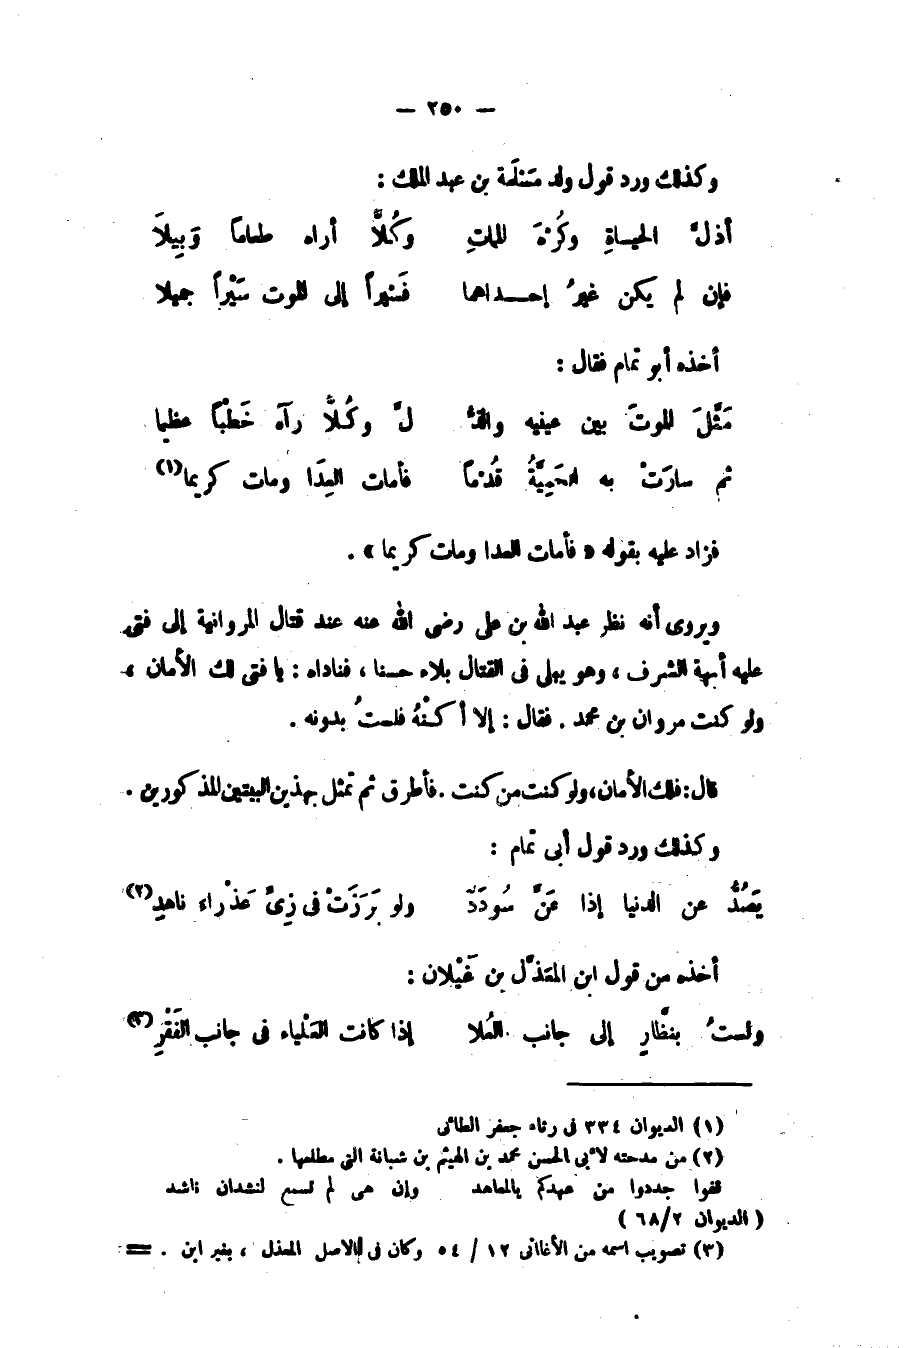 — ٢٥٠ —
وكذلك ورد قول ولد مَسْلَمة بن عبد الملك :
أذلَّ الحيـاةِ وكُرْهَ المماتِ وكُـلاًّ أراه طعاماً وَبِيلاَ
فإن لم يكن غيرُ إحـــداهما فَسَيْراً إلى الموت سَيْراً جميلا
أخذه أبو تمام فقال :
مَثَّلَ الموتَ بين عينيه والذُّ لَّ وكُـلاًّ رآه خَطْبًا عظيما
ثم سارَتْ به الحَمِيَّةُ قُدْماً فأمات العِدَا ومات كريما(١)
فزاد عليه بقوله « فأمات العدا ومات كريما » .
ويروى أنه نظر عبد الله بن على رضى الله عنه عند قتال المروانية إلى فتى
عليه أبهة الشرف ، وهو يبلى فى القتال بلاء حسنا ، فناداه : يا فتى لك الأمان ،
ولو كنت مروان بن محمد . فقال : إلا أكـنْهُ فلستُ بدونه .
قال : فلك الأمان ، ولو كنت من كنت . فأطرق ثم تمثل بهذين البيتين المذكورين .
وكذلك ورد قول أبى تمام :
يَصُدُّ عن الدنيا إذا عَنَّ سُودَدٌ ولو بَرَزَتْ فى زِىِّ عَذْراء ناهدِ(٢)
أخذه من قول ابن المعَذَّل بن غَيْلان :
ولستُ بنظَّارٍ إلى جانب العُلا إذا كانت العَلْياء فى جانب الفَقْرِ(٣)
(١) الديوان ٣٣٤ فى رثاء جعفر الطائى
(٢) من مدحته لأبى الحسن محمد بن الهيثم بن شبانة التى مطلعها .
قفوا جددوا من عهدكم بالمعاهد وإن هى لم تسمع لنشدان ناشد
( الديوان ٦٨/٢ )
(٣) تصويب اسمه من الأغانى ١٢ / ٥٤ وكان فى الاصل المعذل ، بغير ابن . =